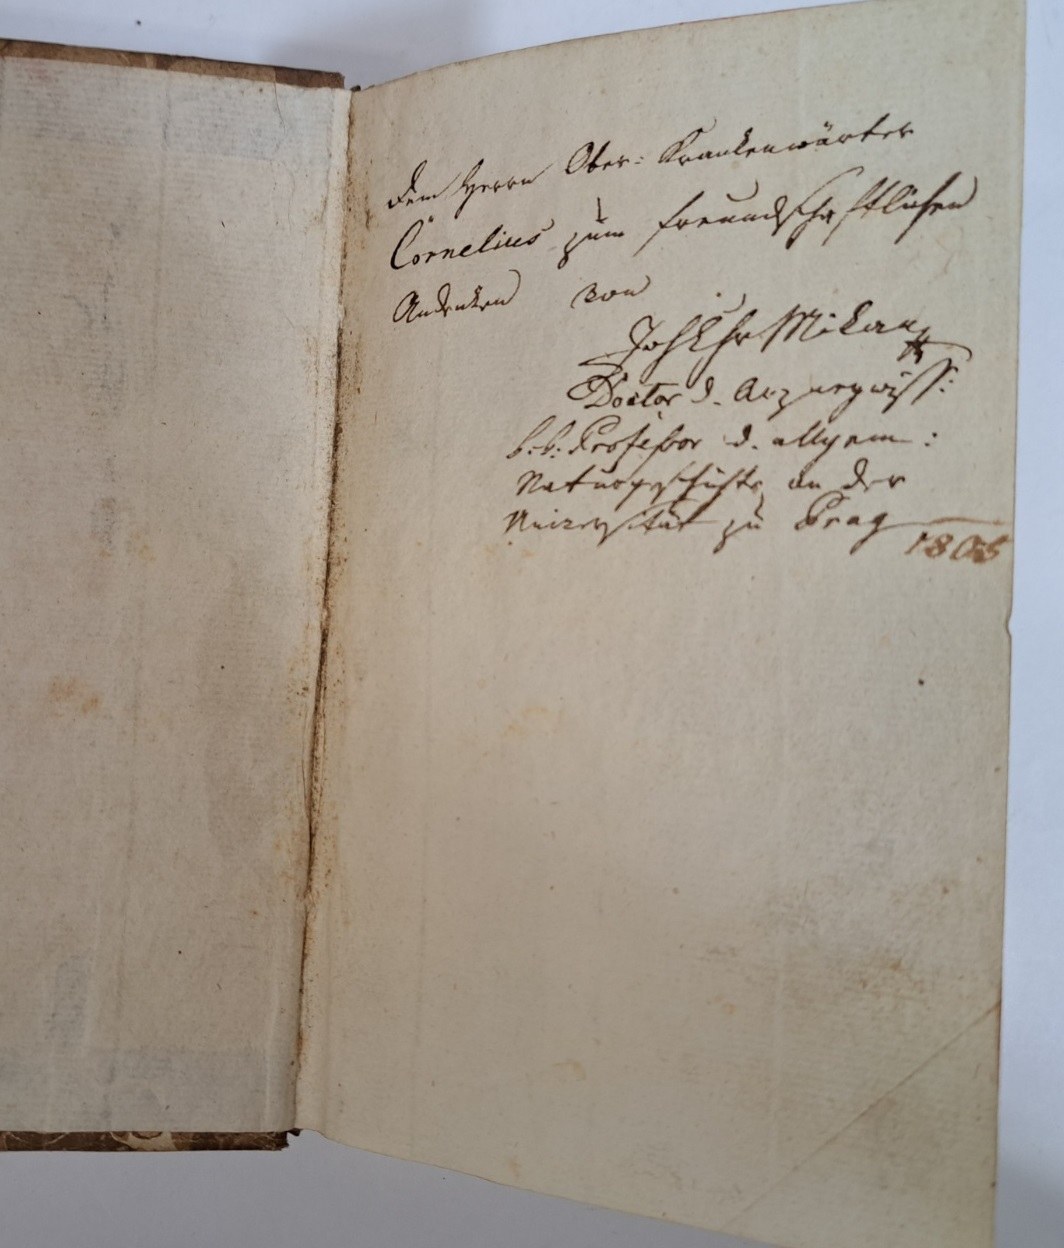 Dem Herrn Ober: Krankenwärter
Cornelius zum freundschaftlichen
Andenken von
Joh Chr Mikan
Doctor d. Arzneywiss:
k. k. Professor d. allgem:
Naturgeschichte an der
Universität zu Prag
1805